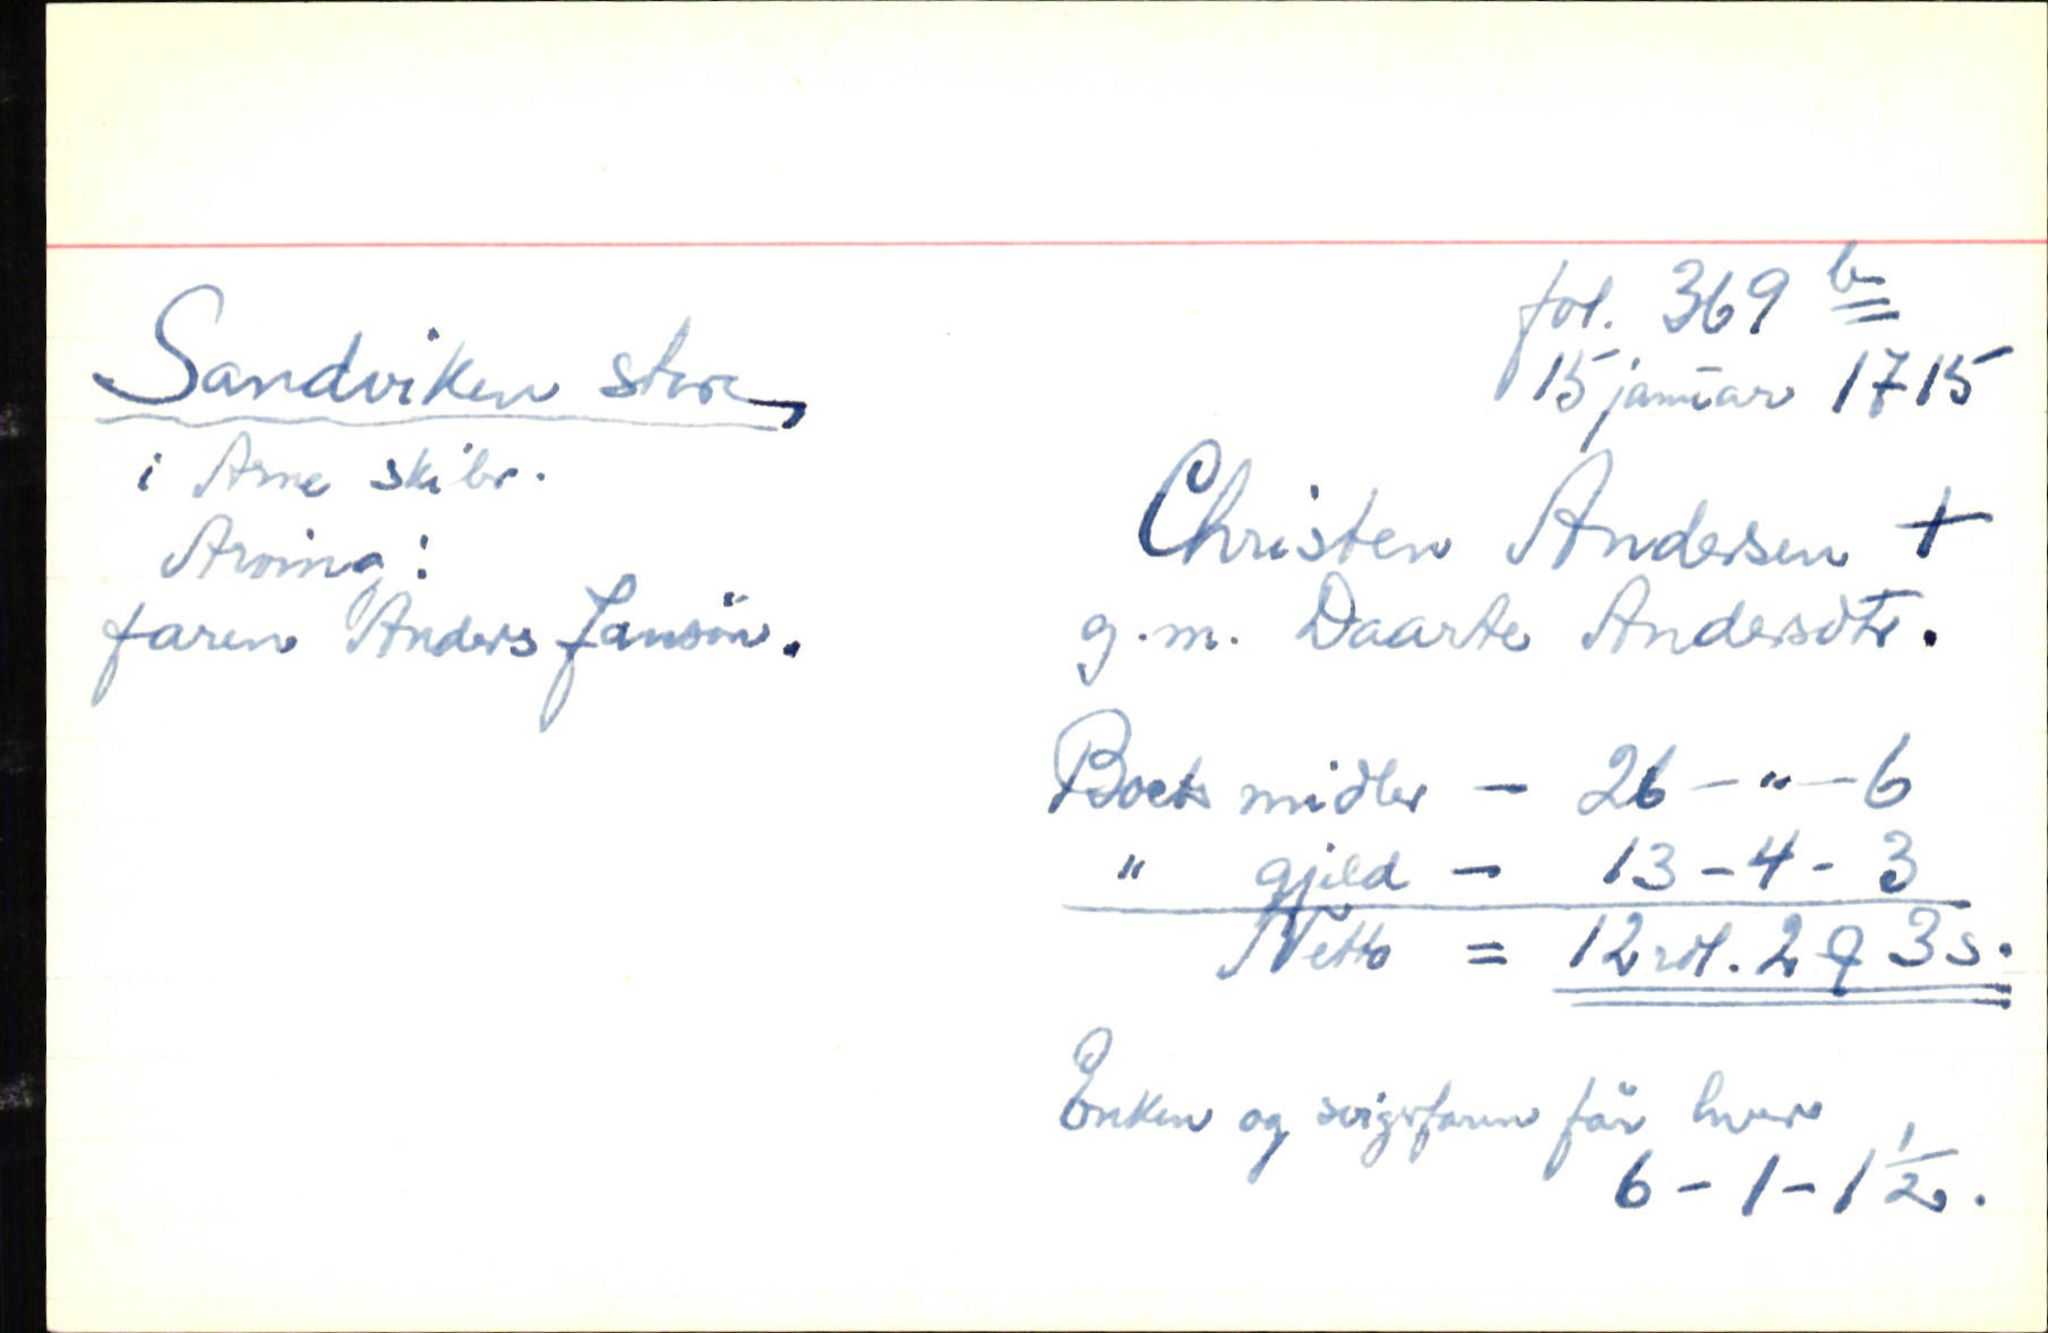 fol. 369 b
15 januar 1715
Sandviken store,
i Arne skibr.
Arving:
faren Anders Jansön.
Christen Andersen +
g.m. Daarte Andersdtr.
Boets midler - 26 - " - 6
" gjeld - 13 - 4 - 3
Netto = 12 rdl. 2 q 3 s.
Enken og svigrfaren får hver
6 - 1 - 1 1/2.